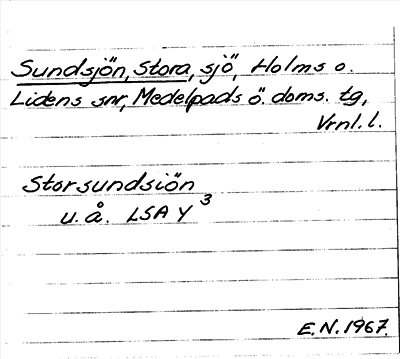 Sundsjön, Stora, sjö, Holms o.
Lidens snr, Medelpads ö. doms. tg,
Vrnl. l.
Storsundsiön
u. å. LSA Y 3
E.N. 1967.